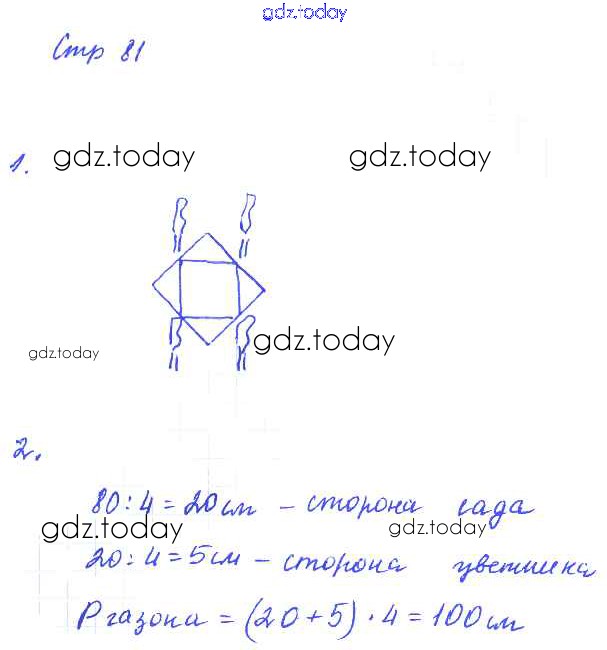 gdz.today
Стр 81
1. gdz.today gdz.today
gdz.today gdz.today
2.
80:4=20см – сторона сада
gdz.today gdz.today
20:4=5см – сторона цветника
P газона = (20+5)·4=100см